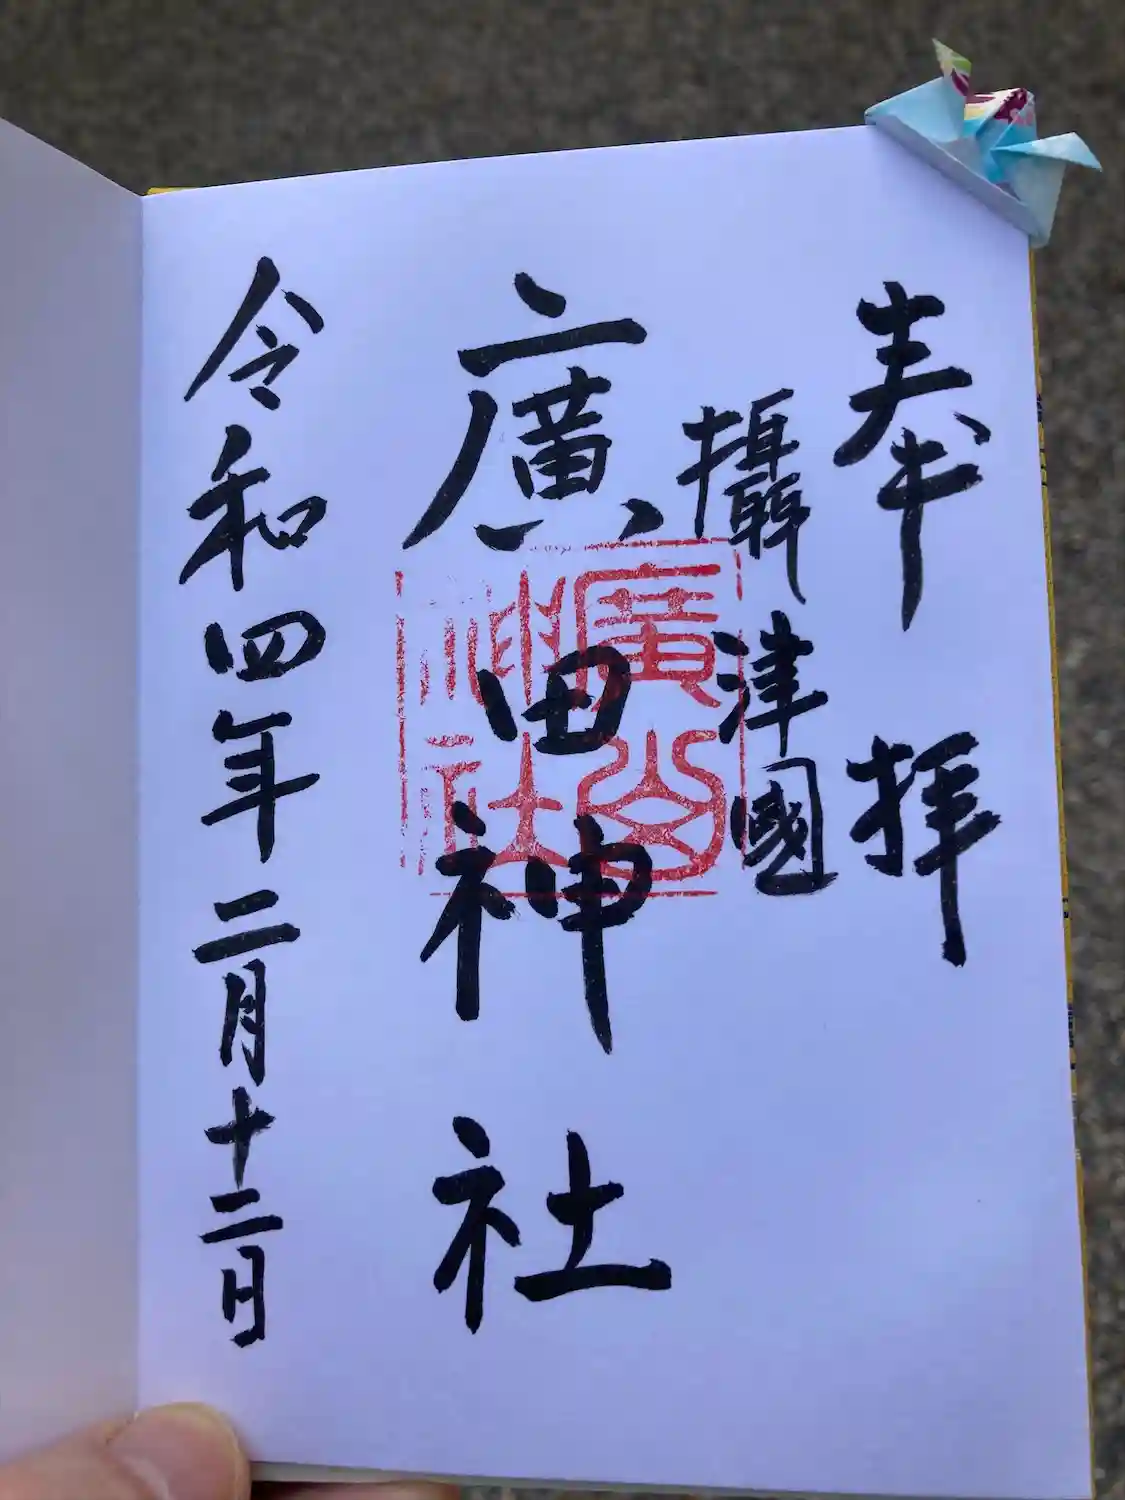 奉拝
攝津國
廣田神社
廣田神社
令和四年二月十二日